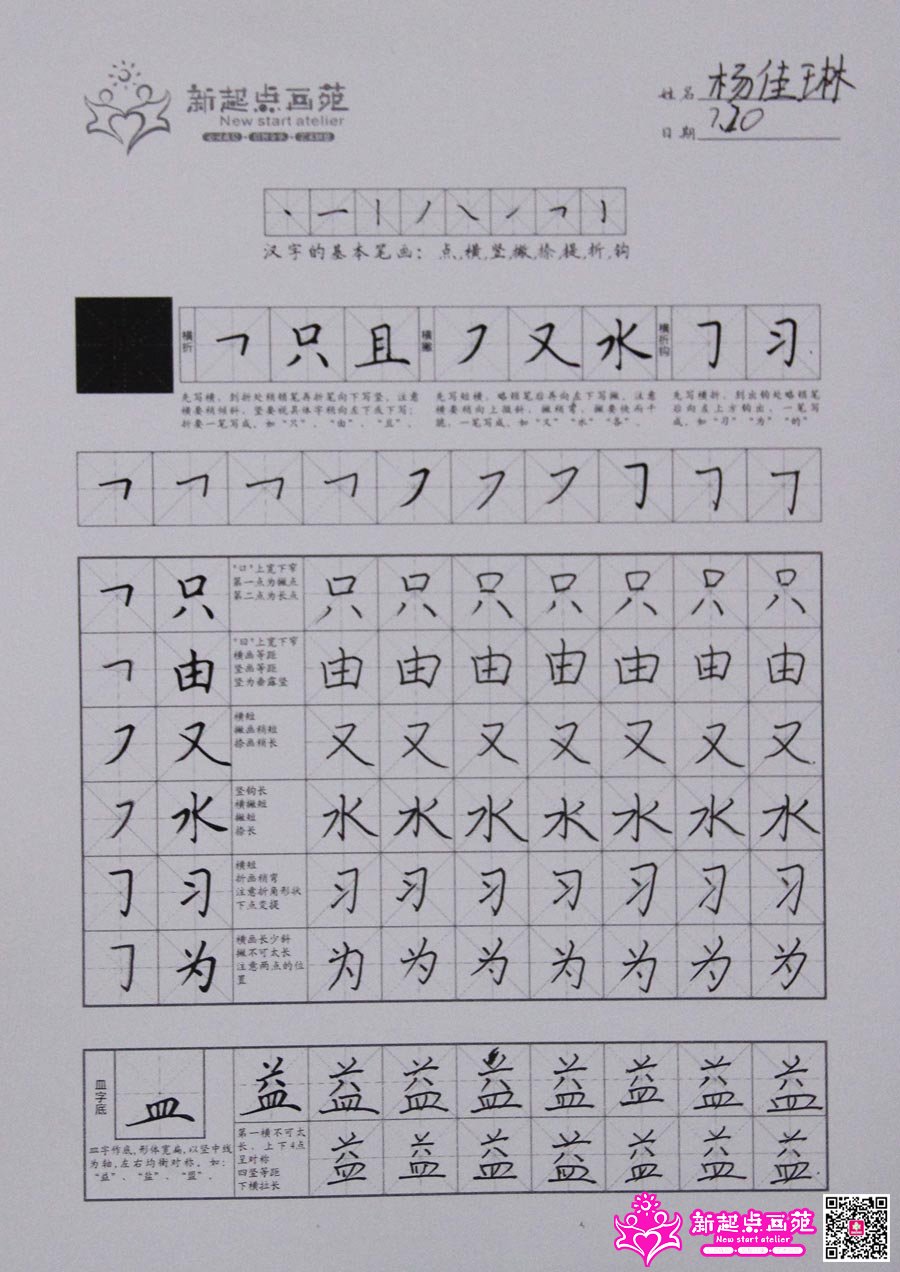 新起点画苑
New start atelier
姓名 杨佳琳
日期 7.20
汉字的基本笔画：点,横,竖,撇,捺,提,折,钩
横折 ㇕ 只 且 横撇 ㇇ 又 水 横折钩 ㇆ 习
先写横，到折处稍顿笔再折笔向下写竖，注意
横要稍倾斜，竖要视具体字稍向左下或下写；
折要一笔写成。如“只”、“由”、“且”、
先写短横，略顿笔后再向左下写撇，注意
横要稍向上倾斜，撇稍弯，撇要快而干
脆，一笔写成，如“又”“水”“各”、
先写横折，到出钩处略顿笔
后向左上方钩出，一笔写
成，如“习”“为”“的”
㇕ ㇕ ㇕ ㇕ ㇇ ㇇ ㇇ ㇆ ㇆ ㇆
㇕ 只 只 只 只 只 只 只 只
“口”上宽下窄
第一点为撇点
第二点为长点
㇕ 由 由 由 由 由 由 由 由
“曰”上宽下窄
横画等距
竖画等距
竖为垂露竖
㇇ 又 又 又 又 又 又 又 又
横短
撇画稍短
捺画稍长
㇇ 水 水 水 水 水 水 水 水
竖钩长
横撇短
撇短
捺长
㇆ 习 习 习 习 习 习 习 习
横短
折画稍弯
注意折角形状
下点变提
㇆ 为 为 为 为 为 为 为 为
横画长少斜
撇不可太长
注意两点的位
置
皿字底 皿 益 益 益 益 益 益 益 益
皿字作底,形体宽扁,以竖中线
为轴,左右均衡对称。如：
“益”、“盐”、“盟”、
第一横不可太
长，上下4点
呈对称
四竖等距
下横拉长
益 益 益 益 益 益 益
新起点画苑
New start atelier